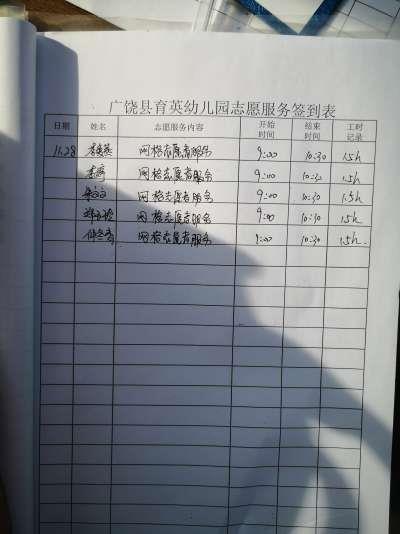 广饶县育英幼儿园志愿服务签到表
日期 姓名 志愿服务内容 开始时间 结束时间 工时记录
11.28 网格志愿者服务 9:00 10:30 1.5h
网格志愿者服务 9:00 10:30 1.5h
网格志愿者服务 9:00 10:30 1.5h
网格志愿者服务 9:00 10:30 1.5h
网格志愿者服务 9:00 10:30 1.5h